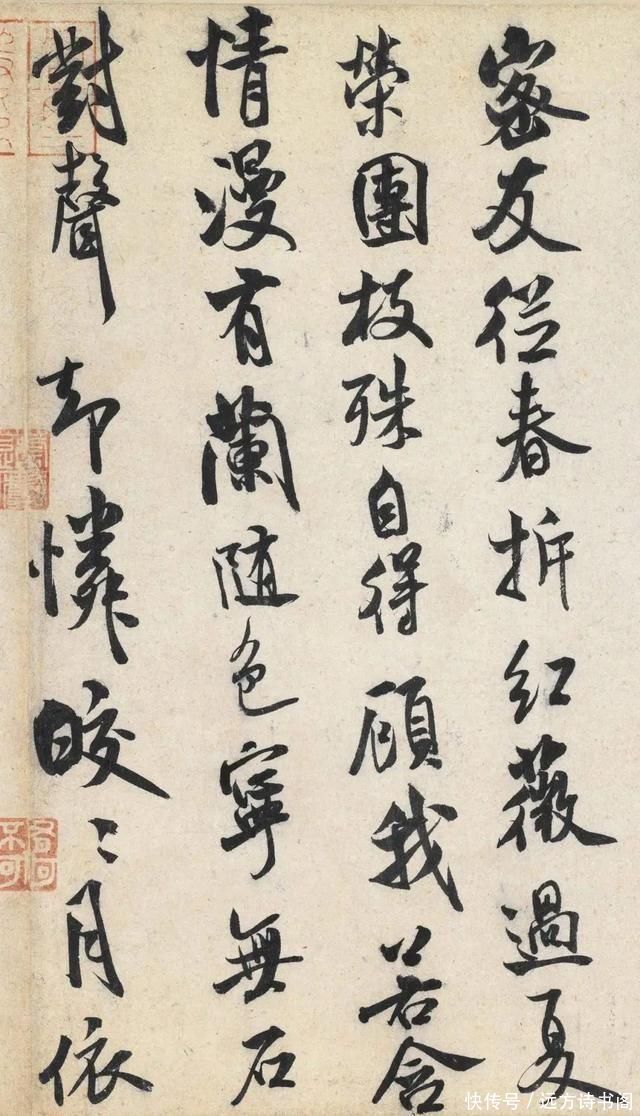 密友從春拆紅薇過夏
榮團枝殊自得顧我若含
情漫有蘭隨色寧無石
對聲却憐晈〻月依
快传号/远方诗书阁